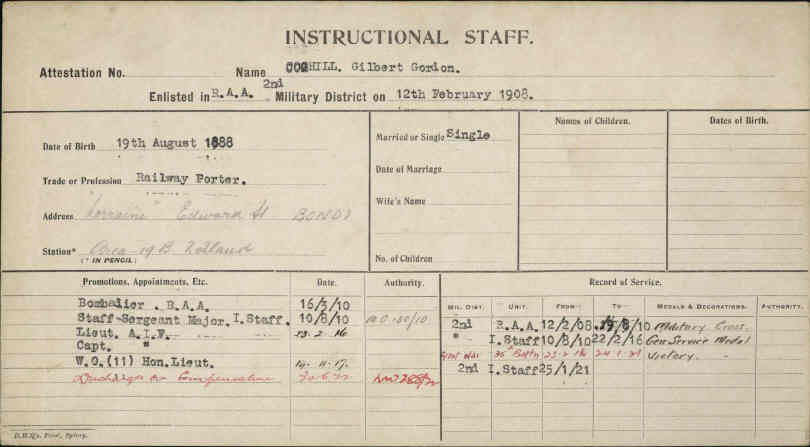 INSTRUCTIONAL STAFF.
Attestation No. Name COGHILL. Gilbert Gordon.
Enlisted in R.A.A. 2nd Military District on 12th February 1908.
Date of Birth 19th August 1888
Trade or Profession Railway Porter.
Address "Lorraine" Edward St BONDI
Station* Area 19B
(* IN PENCIL)
Married or Single Single
Date of Marriage
Wife's Name
No. of Children
Names of Children.
Dates of Birth.
Promotions, Appointments, Etc. Date. Authority.
Bombadier . R.A.A. 16/3/10
Staff-Sergeant Major. I.Staff. 10/8/10
Lieut. A.I.F. 23-2-16
Capt. "
W.O.(11) Hon.Lieut. 14-11-17.
Discharged on Compensation 30-6-22
Record of Service.
MIL. DIST. UNIT. FROM TO MEDALS & DECORATIONS. AUTHORITY.
2nd R.A.A. 12/2/08 /8/10 Military Cross.
" I.Staff 10/8/10 22/2/16 Gen Service Medal
Great War 35th Battn 23-2-16 24-1-21 Victory.
2nd I.Staff 25/1/21
D.H.Q's. Print, Sydney.